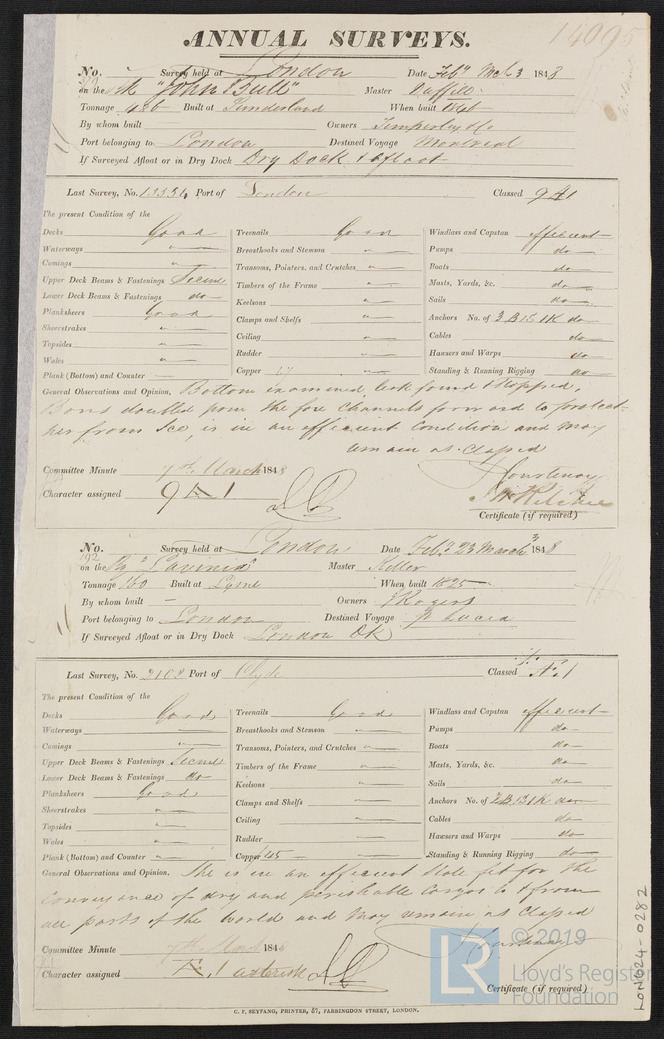 14095
ANNUAL SURVEYS.
No. Survey held at London Date Feby March 3 1848
on the "John Bull" Master
Tonnage 486 Built at Sunderland When built 1846
By whom built Owners Temperley & Co
Port belonging to London Destined Voyage Montreal
If Surveyed Afloat or in Dry Dock Dry Dock & afloat
Last Survey, No. 13334 Port of London Classed 9 A1
The present Condition of the
Decks Good Treenails Good Windlass and Capstan efficient
Waterways " Breasthooks and Stemson " Pumps do
Comings " Transoms, Pointers, and Crutches " Boats do
Upper Deck Beams & Fastenings Secure Timbers of the Frame " Masts, Yards, &c. do
Lower Deck Beams & Fastenings do Keelsons " Sails do
Planksheers Good Clamps and Shelfs " Anchors No. of 3 B 1 S 1 K do
Sheerstrakes " Ceiling " Cables do
Topsides " Rudder " Hawsers and Warps do
Wales " Copper 47 " Standing & Running Rigging do
Plank (Bottom) and Counter "
General Observations and Opinion, Bottom examined, leak found & stopped,
Bows doubled from the fore channels forward to protect
her from Ice, is in an efficient condition and may
remain as Classed
Committee Minute 7th March 1848 Courtenay
Character assigned 9 A 1 Ritchie
Certificate (if required)
No. Survey held at London Date Feby 23 March 3 1848
192
on the Bg "Lavinia" Master Keller
Tonnage 160 Built at Lyme When built 1825
By whom built — Owners Rogers
Port belonging to London Destined Voyage St Lucia
If Surveyed Afloat or in Dry Dock London Dk
Last Survey, No. 2102 Port of Clyde Classed Æ 1
The present Condition of the
Decks Good Treenails Good Windlass and Capstan efficient
Waterways " Breasthooks and Stemson " Pumps do
Comings " Transoms, Pointers, and Crutches " Boats do
Upper Deck Beams & Fastenings Secure Timbers of the Frame " Masts, Yards, &c. do
Lower Deck Beams & Fastenings do Keelsons " Sails do
Planksheers Good Clamps and Shelfs " Anchors No. of 2 B 1 S 1 K do
Sheerstrakes " Ceiling " Cables do
Topsides " Rudder " Hawsers and Warps do
Wales " Copper /45 " Standing & Running Rigging do
Plank (Bottom) and Counter "
General Observations and Opinion. She is in an efficient state fit for the
conveyance of dry and perishable cargos to & from
all parts of the World and may remain as Classed
Committee Minute 7th March 1848 Courtenay
Character assigned Æ 1 asterisk
Certificate (if required)
C. F. SEYFANG, PRINTER, 57, FARRINGDON STREET, LONDON.
LON624-0282
LR
© 2019
Lloyd's Register
Foundation